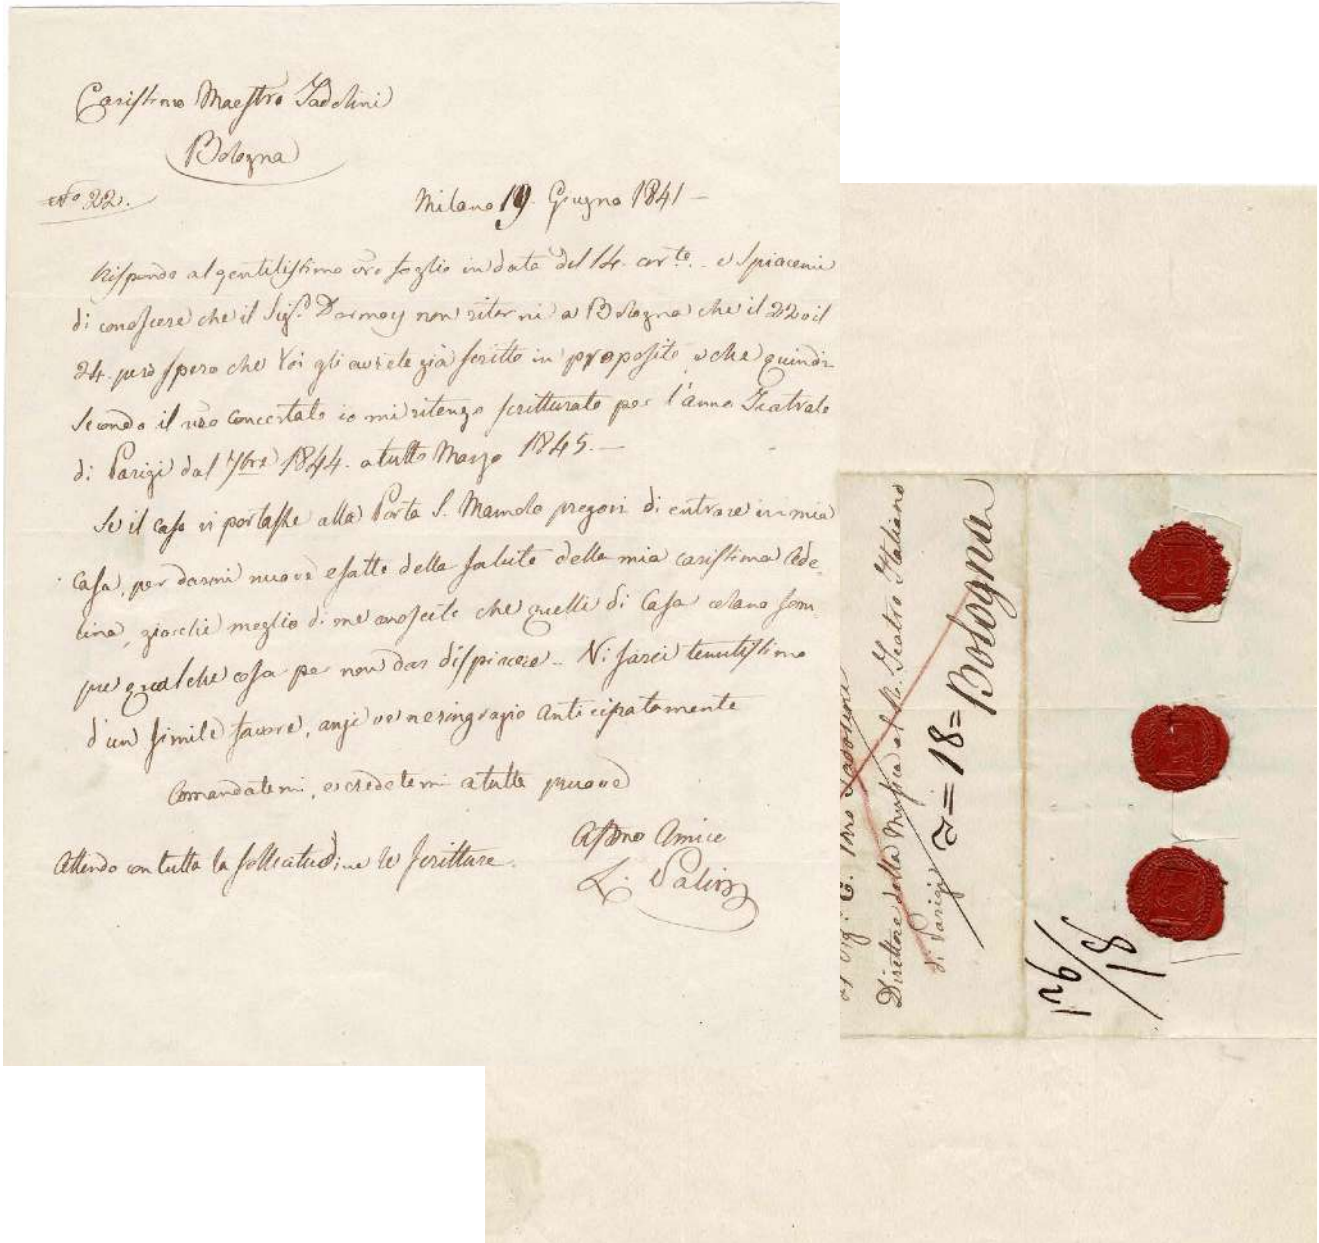 Carissimo Maestro Tadolini
Bologna
No 22.
Milano 19. Giugno 1841 —
Rispondo al gentilissimo vro foglio in data del 14. corrte. e spiacemi
di conoscere che il Sigr. Dormoy non ritorni a Bologna che il 22 o il
24. però spero che Voi gli avrete già scritto in proposito, e che quindi
secondo il vro concertato io mi ritengo scritturato per l'anno Teatrale
di Parigi dal 7bre 1844. a tutto Marzo 1845. —
Se il caso vi portasse alla Porta S. Mamolo pregovi di entrare in mia
Casa, per darmi nuove esatte della salute della mia carissima Ade-
lina, giacchè meglio di me conoscete che quelli di Casa celano sem
pre qualche cosa per non dar dispiacere. Vi sarei tenutissimo
d'un simile favore, anzi ve ne ringrazio anticipatamente
Comandatemi, e credetemi a tutte pruove
Affmo Amico
Attendo con tutta la sollecitudine le scritture.
L.
Sig: G.
Direttore della Musica al R. Teatro Italiano
di Parigi
=18= Bologna
18